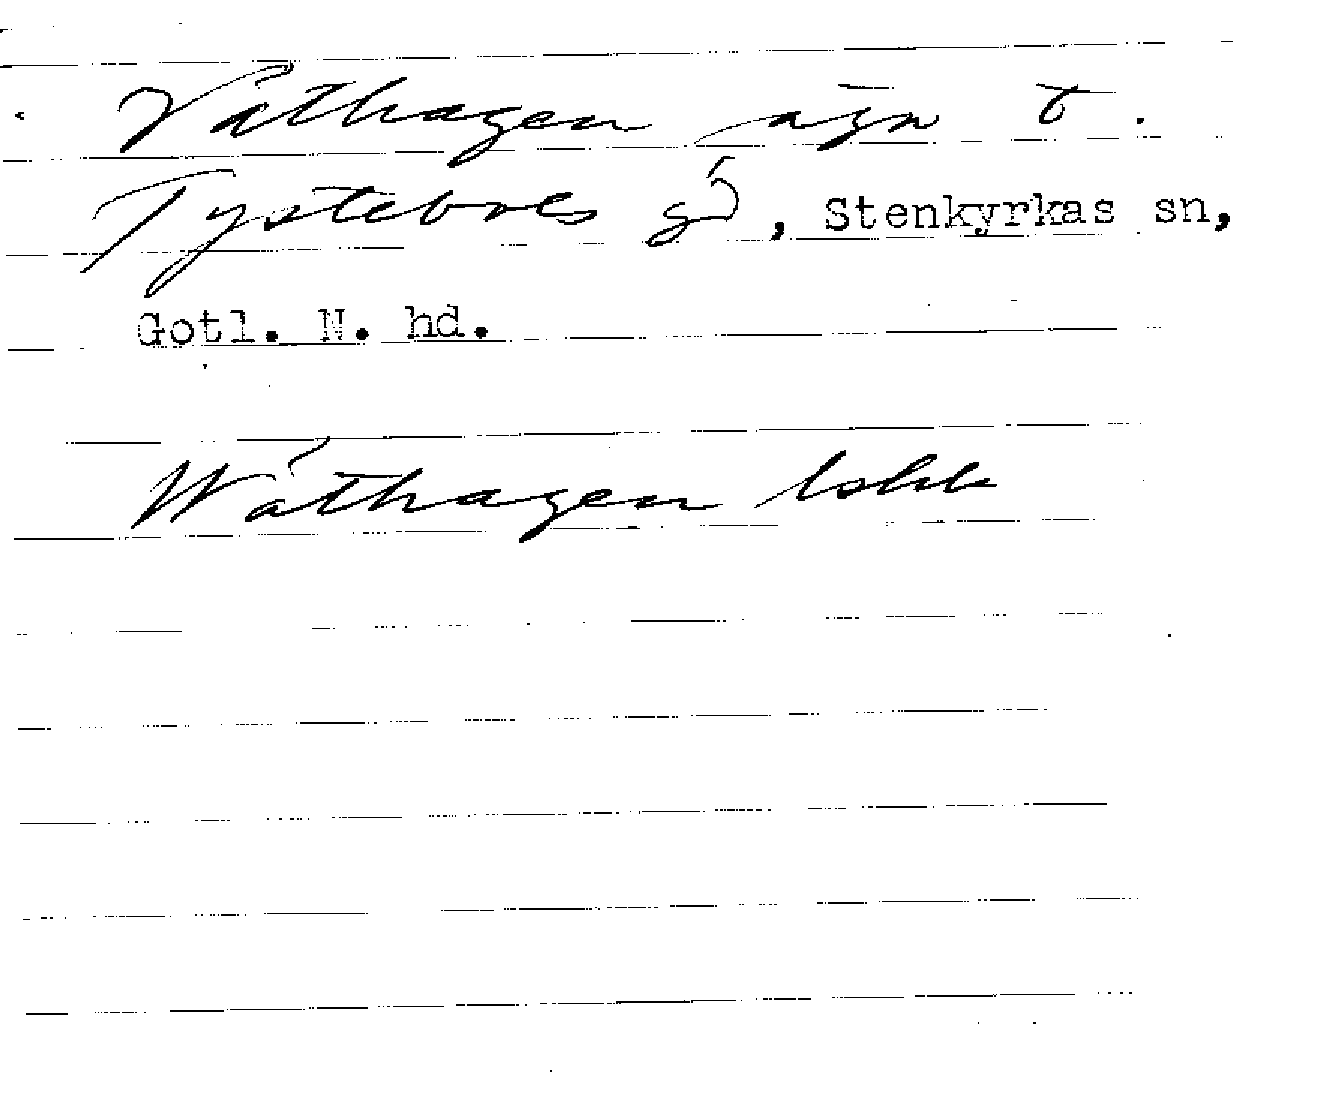 Våthagen ägn t.
Tystebols gå, Stenkyrkas sn,
Gotl. N. hd.
Wåthagen